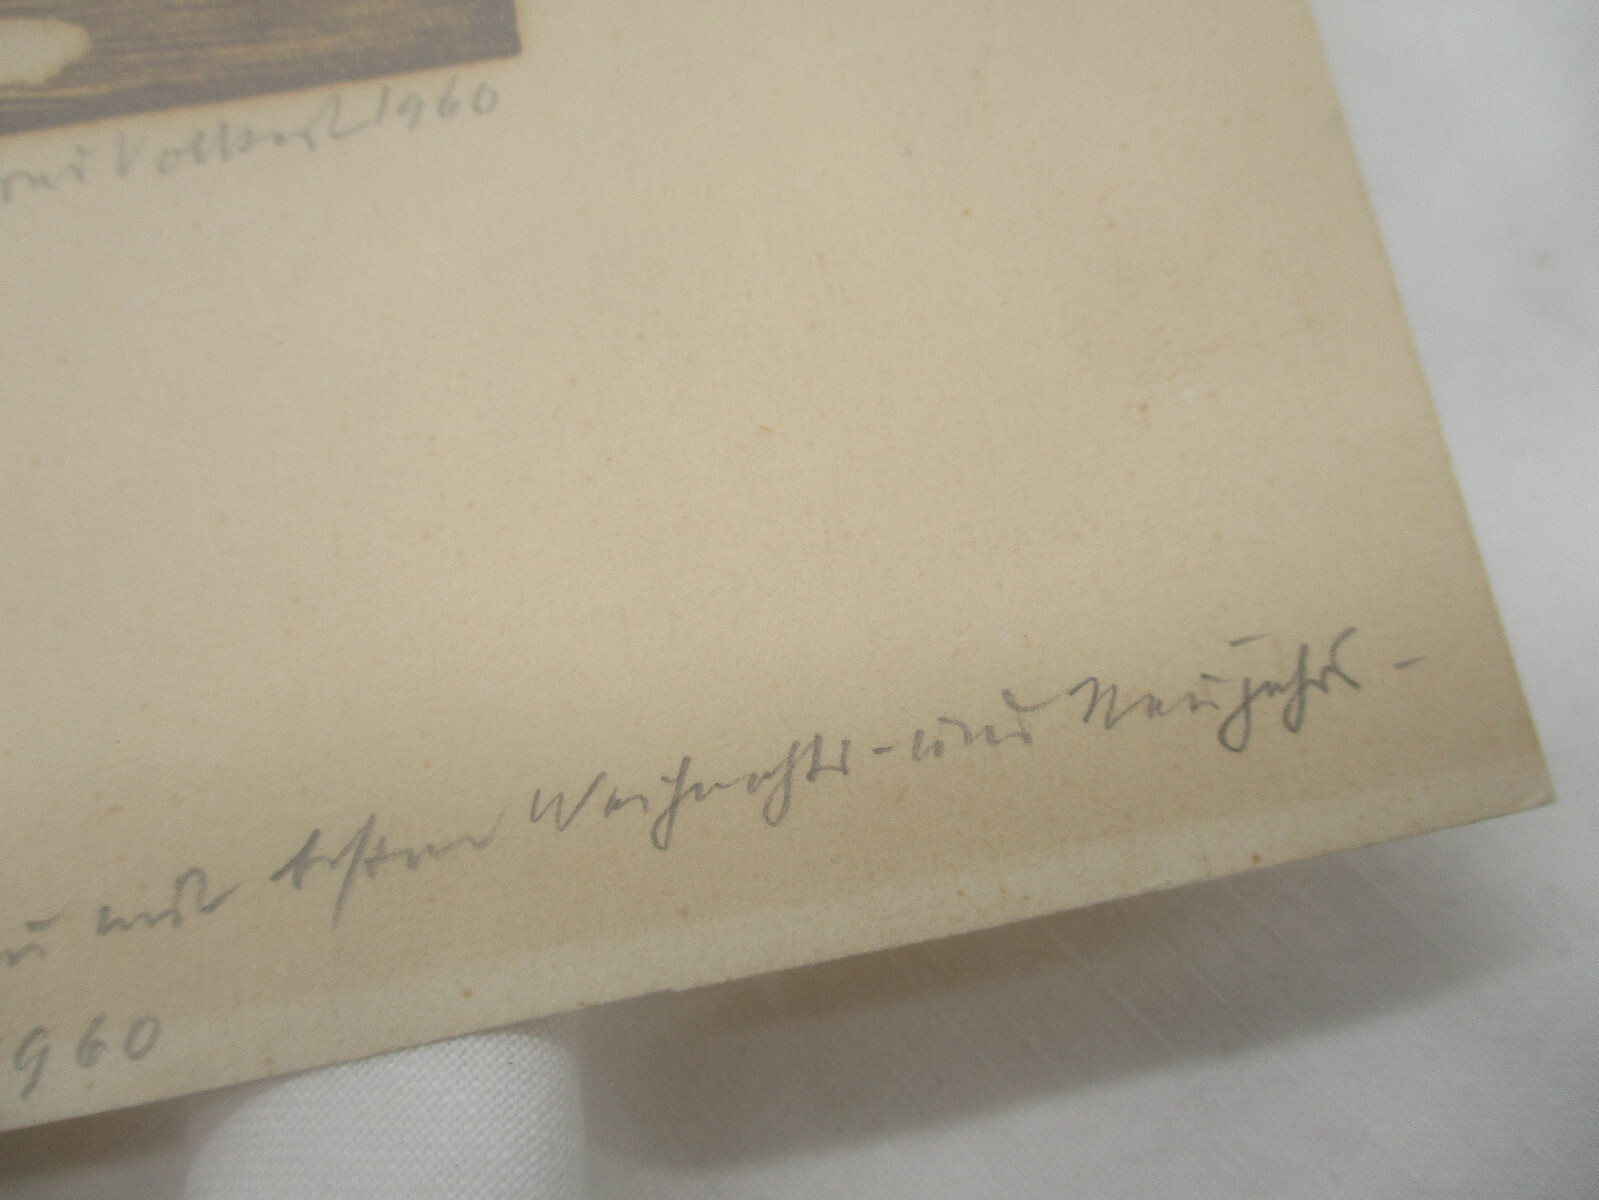 Volkert 1960
mit besten Weihnachts- und Neujahrs-
1960